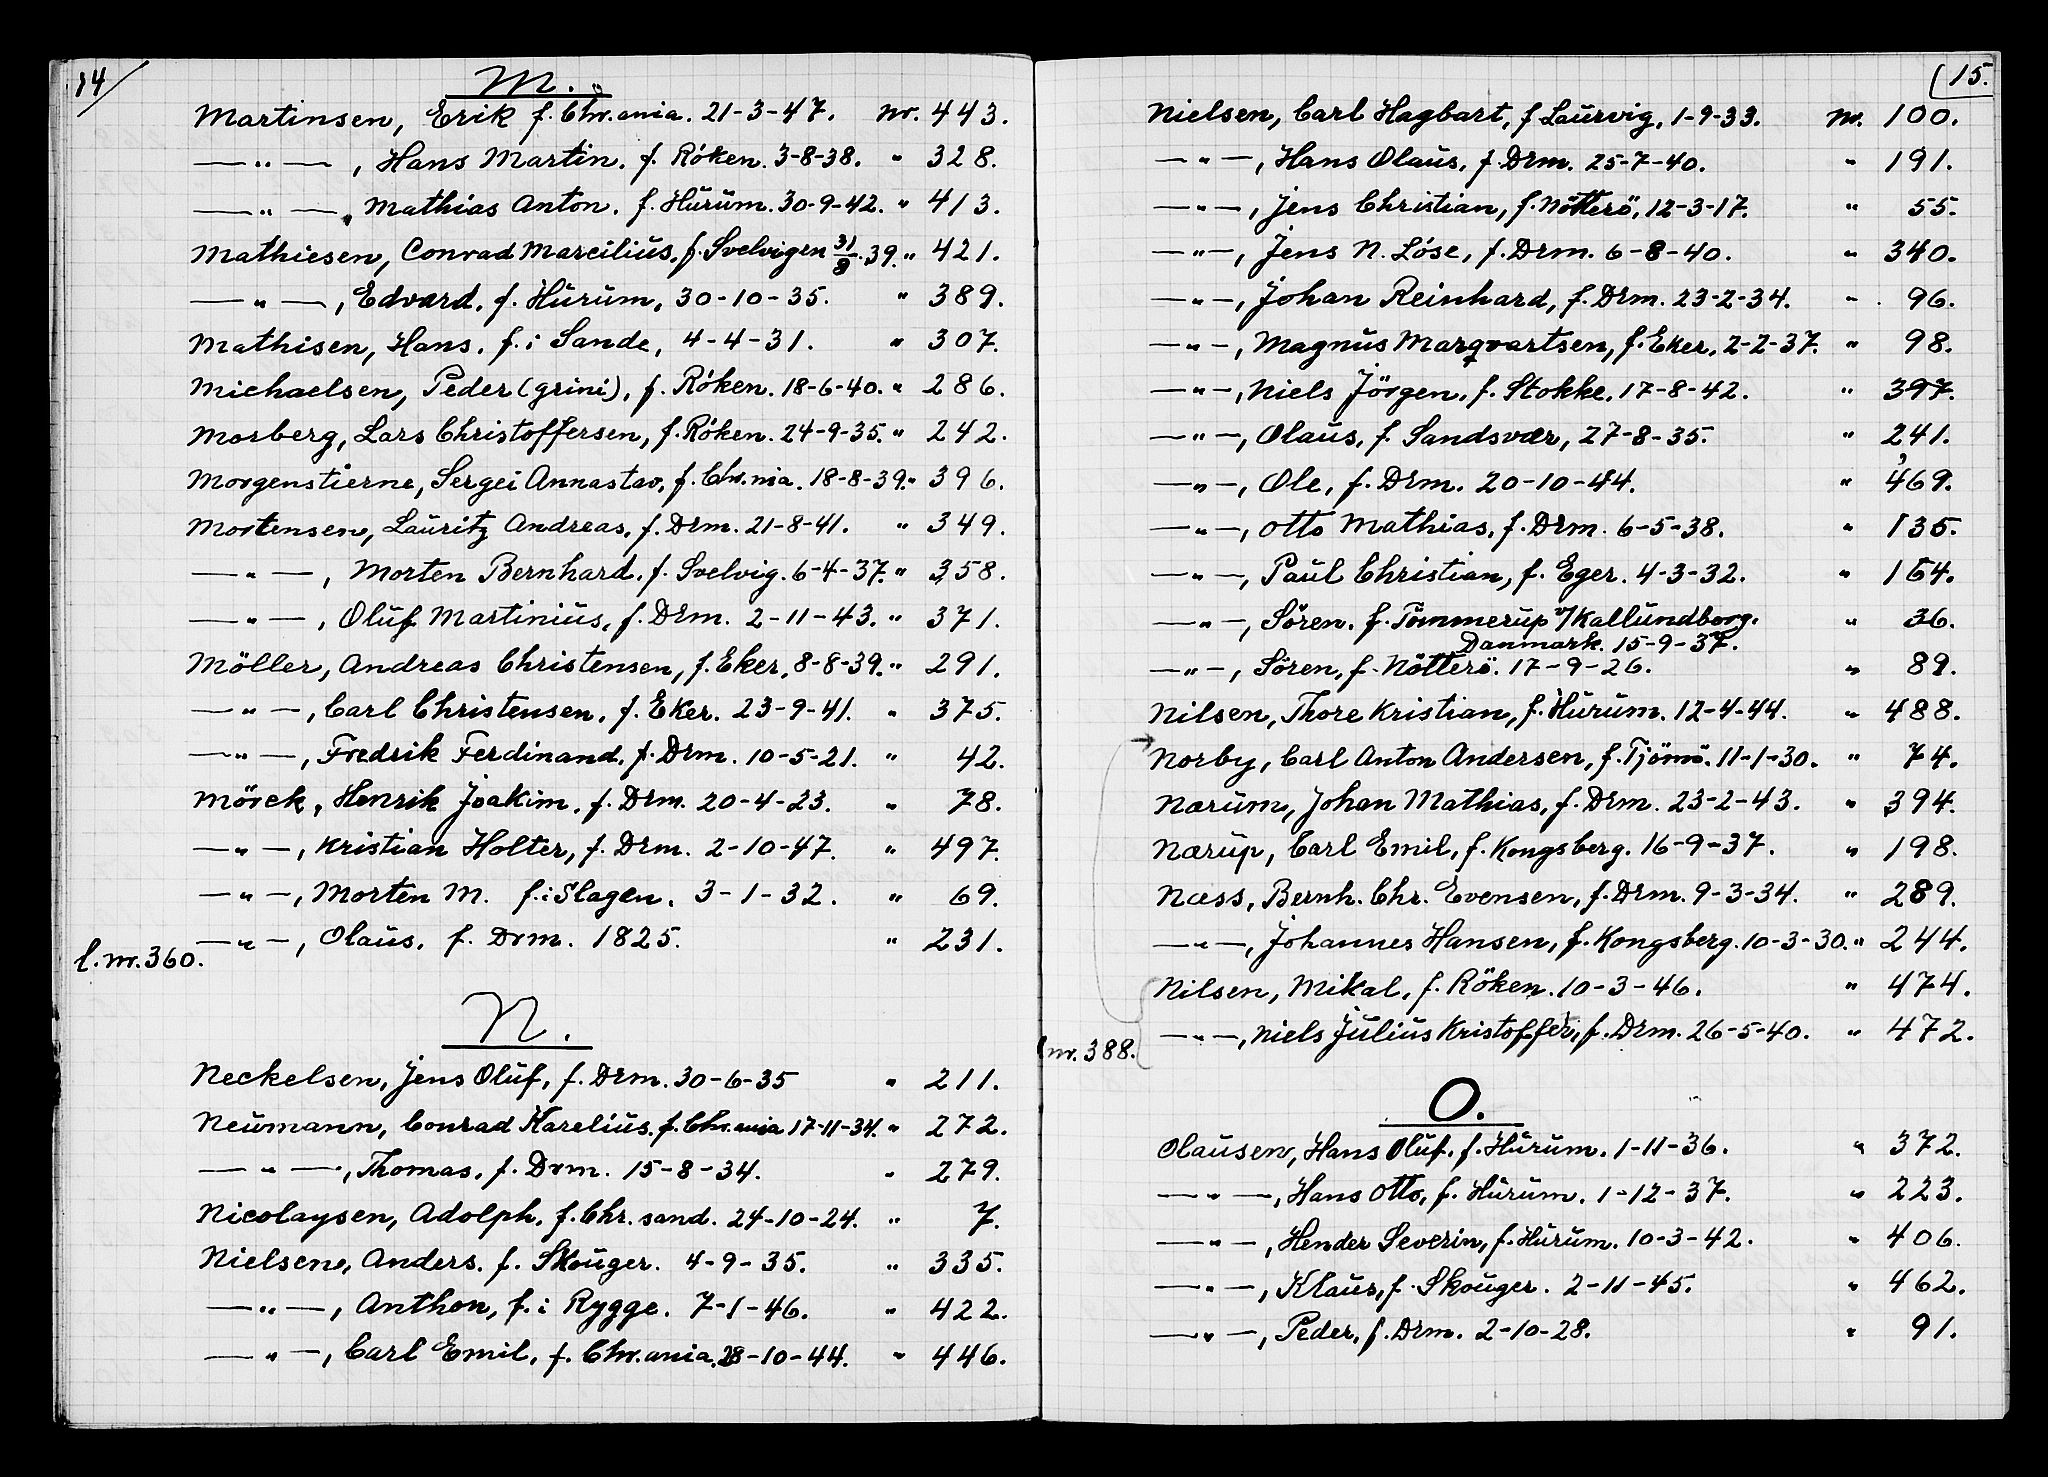 14/
M.
Martinsen, Erik f. Chr.ania. 21-3-47. Nr. 443.
—"—, Hans Martin. f. Röken. 3-8-38. " 328.
—"—, Mathias Anton. f. Hurum. 30-9-42. " 413.
Mathiesen, Conrad Marcilius, f. Svelvigen 31/8.39. " 421.
—"—, Edvard. f. Hurum, 30-10-35. " 389.
Mathisen, Hans. f. i Sande, 4-4-31. " 307.
Michaelsen, Peder (Grini), f. Röken. 18-6-40. " 286.
Morberg, Lars Christoffersen, f. Röken. 24-9-35. " 242.
Morgenstierne, Sergei Annastav, f. Chr.nia. 18-8-39. " 396.
Mortensen, Lauritz Andreas, f. Drm. 21-8-41. " 349.
—"—, Morten Bernhard. f. Svelvig. 6-4-37. " 358.
—"—, Oluf Martinius, f. Drm. 2-11-43. " 371.
Möller, Andreas Christensen, f. Eker, 8-8-39. " 291.
—"—, Carl Christensen. f. Eker. 23-9-41. " 375.
—"—, Fredrik Ferdinand, f. Drm. 10-5-21. " 42.
Mörck, Henrik Joakim. f. Drm. 20-4-23. " 78.
—"—, Kristian Holter, f. Drm. 2-10-47. " 497.
—"—, Morten M. f. i Slagen. 3-1-32. " 69.
—"—, Olaus. f. Drm. 1825. " 231.
l. nr. 360.
N.
Neckelsen, Jens Oluf, f. Drm. 30-6-35 " 211.
Neumann, Conrad Karelius. f. Chr.ania 17-11-34. " 272.
—"—, Thomas. f. Drm. 15-8-34. " 279.
Nicolaysen, Adolph, f. Chr.sand. 24-10-24. " 7.
Nielsen, Anders. f. Skouger. 4-9-35. " 335.
—"—, Anthon, f. i Rygge. 7-1-46. " 422.
—"—, Carl Emil, f. Chr.ania. 28-10-44. " 446.
15.
Nielsen, Carl Hagbart, f. Laurvig, 1-9-33. Nr. 100.
—"—, Hans Olaus, f. Drm. 25-7-40. " 191.
—"—, Jens Christian, f. Nötterö, 12-3-17. " 55.
—"—, Jens N. Löse, f. Drm. 6-8-40. " 340.
—"—, Johan Reinhard, f. Drm. 23-2-34. " 96.
—"—, Magnus Marqvartsen, f. Eker. 2-2-37. " 98.
—"—, Niels Jörgen, f. Stokke. 17-8-42. " 397.
—"—, Olaus, f. Sandsvær, 27-8-35. " 241.
—"—, Ole, f. Drm. 20-10-44. " 469.
—"—, Otto Mathias, f. Drm. 6-5-38. " 135.
—"—, Paul Christian, f. Eger. 4-3-32. " 164.
—"—, Sören. f. Tömmerup v/Kallundborg. " 36.
Danmark. 15-9-37.
—"—, Sören, f. Nötterö. 17-9-26. " 89.
Nilsen, Thore Kristian, f. Hurum. 12-4-44. " 488.
→ Norby, Carl Anton Andersen, f. Tjömö. 11-1-30. " 74.
Nærum, Johan Mathias, f. Drm. 23-2-43. " 394.
Nærup, Carl Emil, f. Kongsberg. 16-9-37. " 198.
Næss, Bernh. Chr. Evensen, f. Drm. 9-3-34. " 289.
—"—, Johannes Hansen, f. Kongsberg. 10-3-30. " 244.
Nilsen, Mikal, f. Röken. 10-3-46. " 474.
—"—, Niels Julius Kristoffer, f. Drm. 26-5-40. " 472.
l nr. 388.
O.
Olausen, Hans Oluf. f. Hurum. 1-11-36. " 372.
—"—, Hans Otto, f. Hurum. 1-12-37. " 223.
—"—, Hender Severin, f. Hurum. 10-3-42. " 406.
—"—, Klaus, f. Skouger. 2-11-45. " 462.
—"—, Peder, f. Drm. 2-10-28. " 91.